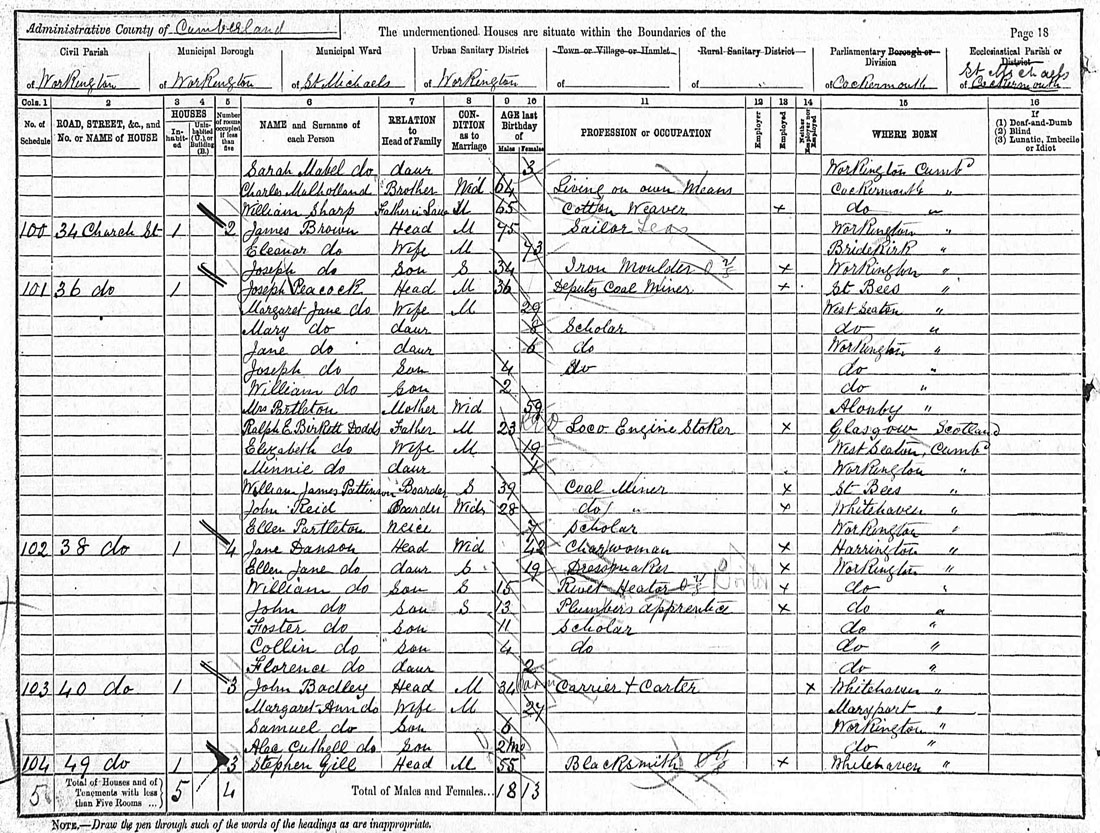 Administrative County of Cumberland The undermentioned Houses are situate within the Boundaries of the Page 18
Civil Parish Municipal Borough Municipal Ward Urban Sanitary District Town or Village or Hamlet Rural Sanitary District Parliamentary Borough or Division Ecclesiastical Parish or District
of Workington of Workington of St Michaels of Workington of of of Cockermouth of St Michaels Cockermouth
Cols. 1 2 3 4 5 6 7 8 9 10 11 12 13 14 15 16
No. of Schedule ROAD, STREET, &c., and No. or NAME of HOUSE HOUSES Inhabited Uninhabited (U.) or Building (B.) Number of rooms occupied if less than five NAME and Surname of each Person RELATION to Head of Family CONDITION as to Marriage AGE last Birthday of Males Females PROFESSION or OCCUPATION Employer Employed Neither nor Employed WHERE BORN If (1) Deaf-and-Dumb (2) Blind (3) Lunatic, Imbecile or Idiot
Sarah Mabel do daur 3 Workington Cumbd
Charles Mulholland Brother Wid 64 Living on own Means Cockermouth "
William Sharp Father in Law M 65 Cotton Weaver x do "
100 34 Church St 1 2 James Brown Head M 75 Sailor Seas Workington "
Eleanor do Wife M 73 Bridekirk "
Joseph do Son S 34 Iron Moulder x Workington "
101 36 do 1 Joseph Peacock Head M 36 Deputy Coal Miner x St Bees "
Margaret Jane do Wife M 29 West Seaton "
Mary do daur 8 Scholar do "
Jane do daur 6 do Workington "
Joseph do Son 4 do do "
William do Son 2 do "
Mrs Partleton Mother Wid 59 Alonby "
Ralph E. Birkett Dodds Father M 23 Loco Engine Stoker x Glasgow Scotland
Elizabeth do Wife M 19 West Seaton, Cumbd
Minnie do daur 1 Workington "
William James Pattinson Boarder S 39 Coal Miner x St Bees "
John Reid Boarder Widr 28 do " x Whitehaven "
Ellen Partleton Neice 7 Scholar Workington "
102 38 do 1 4 Jane Danson Head Wid 42 Charwoman x Harrington "
Ellen Jane do daur S 19 Dressmaker x Workington "
William do Son S 15 Rivet Heator x do "
John do Son S 13 Plumbers apprentice x do "
Foster do Son 11 Scholar do "
Collin do Son 4 do do "
Florence do daur 2 do "
103 40 do 1 3 John Badley Head M 34 Carrier & Carter x Whitehaven "
Margaret Ann do Wife M 27 Maryport "
Samuel do Son 6 Workington "
Alec Cuthell do Son 2 mo do "
104 49 do 1 3 Stephen Gill Head M 55 Blacksmith x Whitehaven "
5 Total of Houses and of Tenements with less than Five Rooms ... 5 4 Total of Males and Females... 18 13
NOTE.—Draw the pen through such of the words of the headings as are inappropriate.